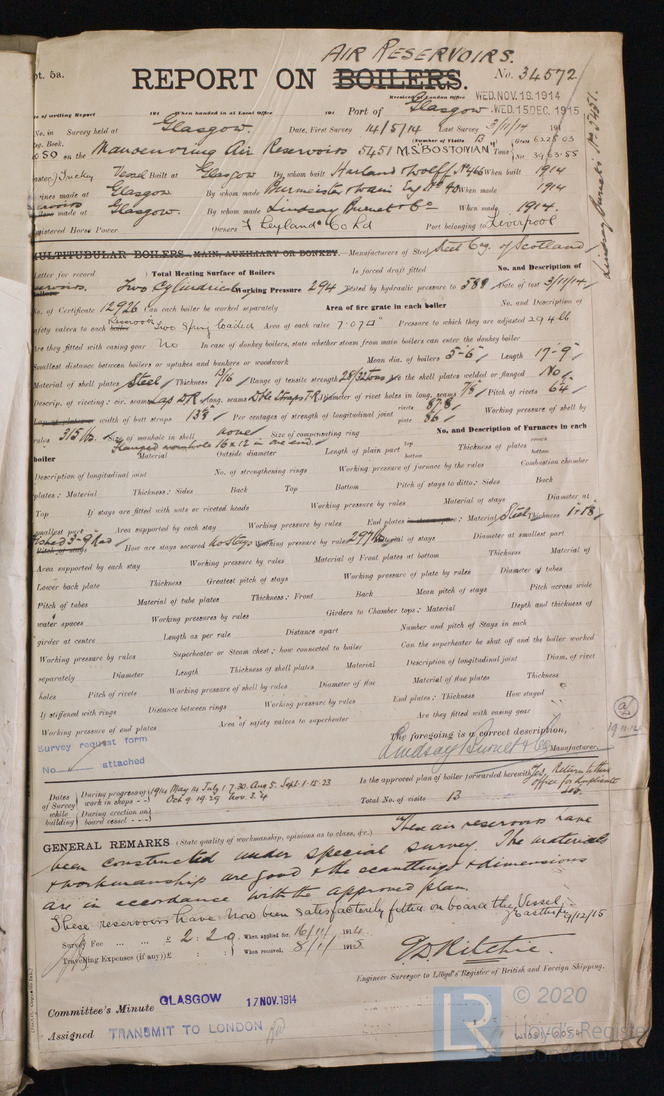 AIR RESERVOIRS.
pt. 5a.
REPORT ON BOILERS.
No. 34572
Received at London Office WED. NOV. 18. 1914
WED. 15 DEC. 1915
te of writing Report 191 When handed in at Local Office 191 Port of Glasgow
No. in Survey held at Glasgow. Date, First Survey 14/5/14 Last Survey 3/11/14 191
eg. Book. (Number of Visits 13)
50 on the Manoeuvring Air Reservoirs 5451 M.S. BOSTONIAN Tons Gross 6225.03 Net 3963.55
Master Vessel Built at Glasgow By whom built Harland & Wolff No 466 When built 1914
ines made at Glasgow By whom made Burmeister & Wain Eng Co When made 1914
made at Glasgow. By whom made Lindsay Burnet & Co When made 1914.
egistered Horse Power Owners F Leyland & Co Ld Port belonging to Liverpool
Lindsay Burnet's No 5451.
MULTITUBULAR BOILERS, MAIN, AUXILIARY OR DONKEY.—Manufacturers of Steel Steel Coy. of Scotland
Letter for record ) Total Heating Surface of Boilers Is forced draft fitted No. and Description of
Two Cylindrical Working Pressure 294 Tested by hydraulic pressure to 588 Date of test 3/11/14
No. of Certificate 12926 Can each boiler be worked separately Area of fire grate in each boiler No. and Description of
safety valves to each boiler Reservoir Two Spring loaded Area of each valve 7.07□" Pressure to which they are adjusted 294 lb
Are they fitted with easing gear No In case of donkey boilers, state whether steam from main boilers can enter the donkey boiler
Smallest distance between boilers or uptakes and bunkers or woodwork Mean dia. of boilers 5'-6" Length 17'-9"
Material of shell plates Steel Thickness 13/16 Range of tensile strength 28/32 tons Are the shell plates welded or flanged No
Descrip. of riveting: cir. seams Lap D R long. seams Dble Straps T R Diameter of rivet holes in long. seams 7/8 Pitch of rivets 6 1/4
Lap of plates or width of butt straps 13 5/8 Per centages of strength of longitudinal joint rivets 87.8 plate 86 Working pressure of shell by
rules 315 lbs. Size of manhole in shell none Size of compensating ring No. and Description of Furnaces in each
Flanged manhole 16 x 12 in one end
boiler Material Outside diameter Length of plain part top bottom Thickness of plates crown bottom
Description of longitudinal joint No. of strengthening rings Working pressure of furnace by the rules Combustion chamber
plates: Material Thickness: Sides Back Top Bottom Pitch of stays to ditto: Sides Back
Top If stays are fitted with nuts or riveted heads Working pressure by rules Material of stays Diameter at
smallest part Area supported by each stay Working pressure by rules End plates: Material Steel Thickness 1 1/8
Pitch of stays How are stays secured no stays Working pressure by rules 297 lbs Material of stays Diameter at smallest part
Area supported by each stay Working pressure by rules Material of Front plates at bottom Thickness Material of
Lower back plate Thickness Greatest pitch of stays Working pressure of plate by rules Diameter of tubes
Pitch of tubes Material of tube plates Thickness: Front Back Mean pitch of stays Pitch across wide
water spaces Working pressures by rules Girders to Chamber tops: Material Depth and thickness of
girder at centre Length as per rule Distance apart Number and pitch of Stays in each
Working pressure by rules Superheater or Steam chest; how connected to boiler Can the superheater be shut off and the boiler worked
separately Diameter Length Thickness of shell plates Material Description of longitudinal joint Diam. of rivet
holes Pitch of rivets Working pressure of shell by rules Diameter of flue Material of flue plates Thickness
If stiffened with rings Distance between rings Working pressure by rules End plates: Thickness How stayed
Working pressure of end plates Area of safety valves to superheater Are they fitted with easing gear
Survey request form
No. attached
The foregoing is a correct description,
Lindsay Burnet & Co Manufacturer.
Dates of Survey while building During progress of work in shops - - 1914 May 14 July 1.7.30. Aug 5. Sept. 1.15.23 Oct 9.19.29 Nov. 3.4
During erection on board vessel - - -
Is the approved plan of boiler forwarded herewith Yes, Return to this office for duplicate
Total No. of visits 13
GENERAL REMARKS (State quality of workmanship, opinions as to class, &c.) These air reservoirs have
been constructed under special survey. The materials
& workmanship are good & the scantlings & dimensions
are in accordance with the approved plan.
These reservoirs have now been satisfactorily fitted on board the Vessel.
Survey Fee ... ... £ 2 : 2 : 0 When applied for, 16/11/ 1914
Travelling Expenses (if any) £ : : When received, 8/1/ 1915
Ritchie.
Engineer Surveyor to Lloyd's Register of British and Foreign Shipping.
Committee's Minute GLASGOW 17 NOV. 1914
Assigned TRANSMIT TO LONDON
LR © 2020
Lloyd's Register
Foundation
W1081-0054